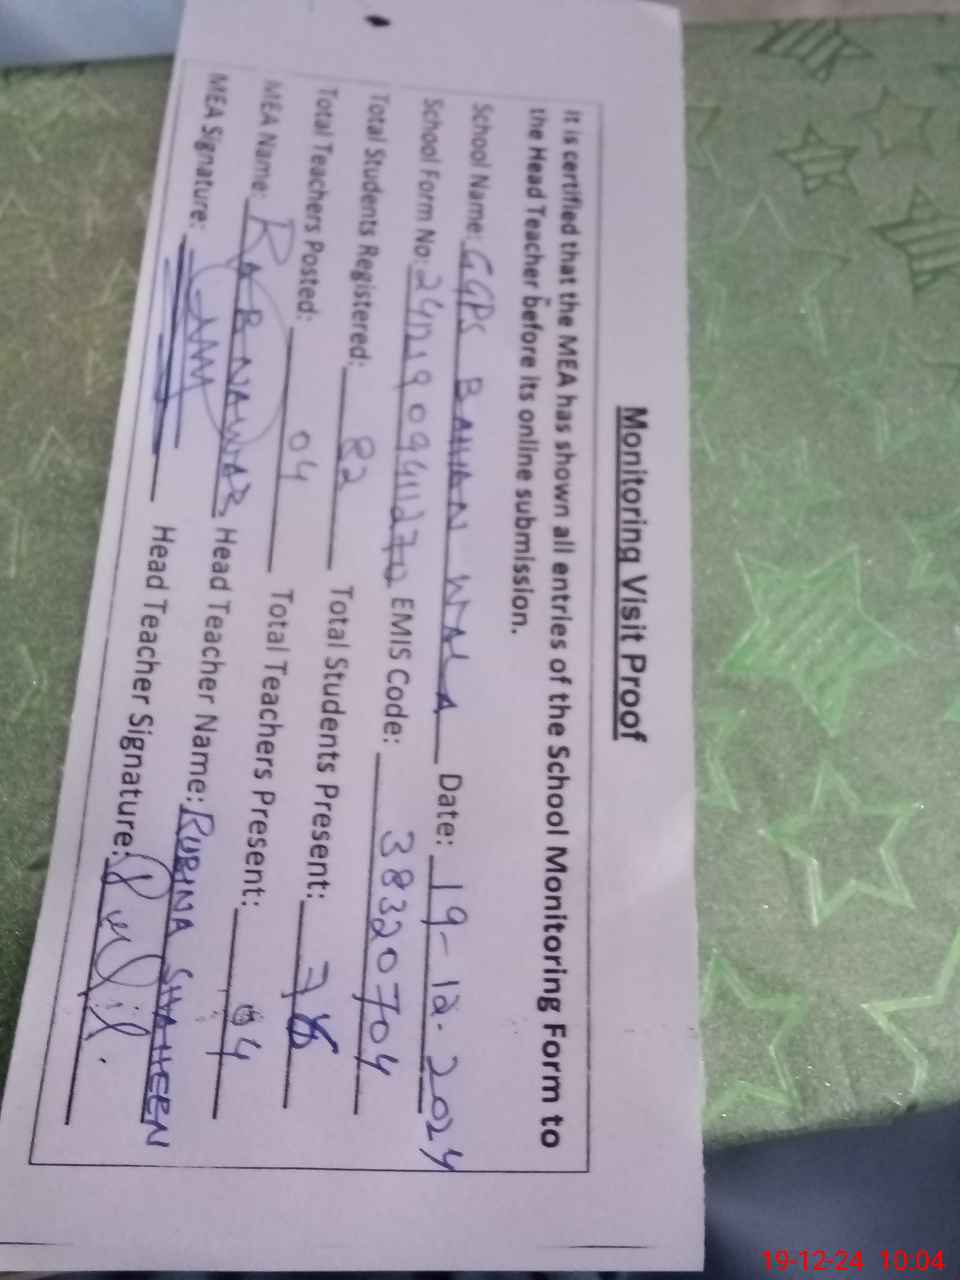 Monitoring Visit Proof
It is certified that the MEA has shown all entries of the School Monitoring Form to
the Head Teacher before its online submission.
School Name: GGPS BAHAN WALA Date: 19-12-2024
School Form No: EMIS Code: 38320704
Total Students Registered: 82 Total Students Present:
Total Teachers Posted: 04 Total Teachers Present: 04
MEA Name: RAB NAWAZ Head Teacher Name: RUBINA SHAHEEN
MEA Signature: Head Teacher Signature:
19-12-24 10:04